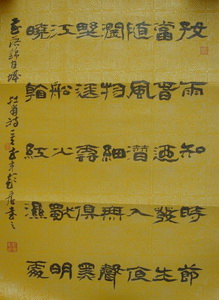 好雨知時節
當春乃發生
隨風潛入夜
潤物細無聲
野徑雲俱黑
江船火獨明
曉看紅濕處
花重錦官城 杜甫詩